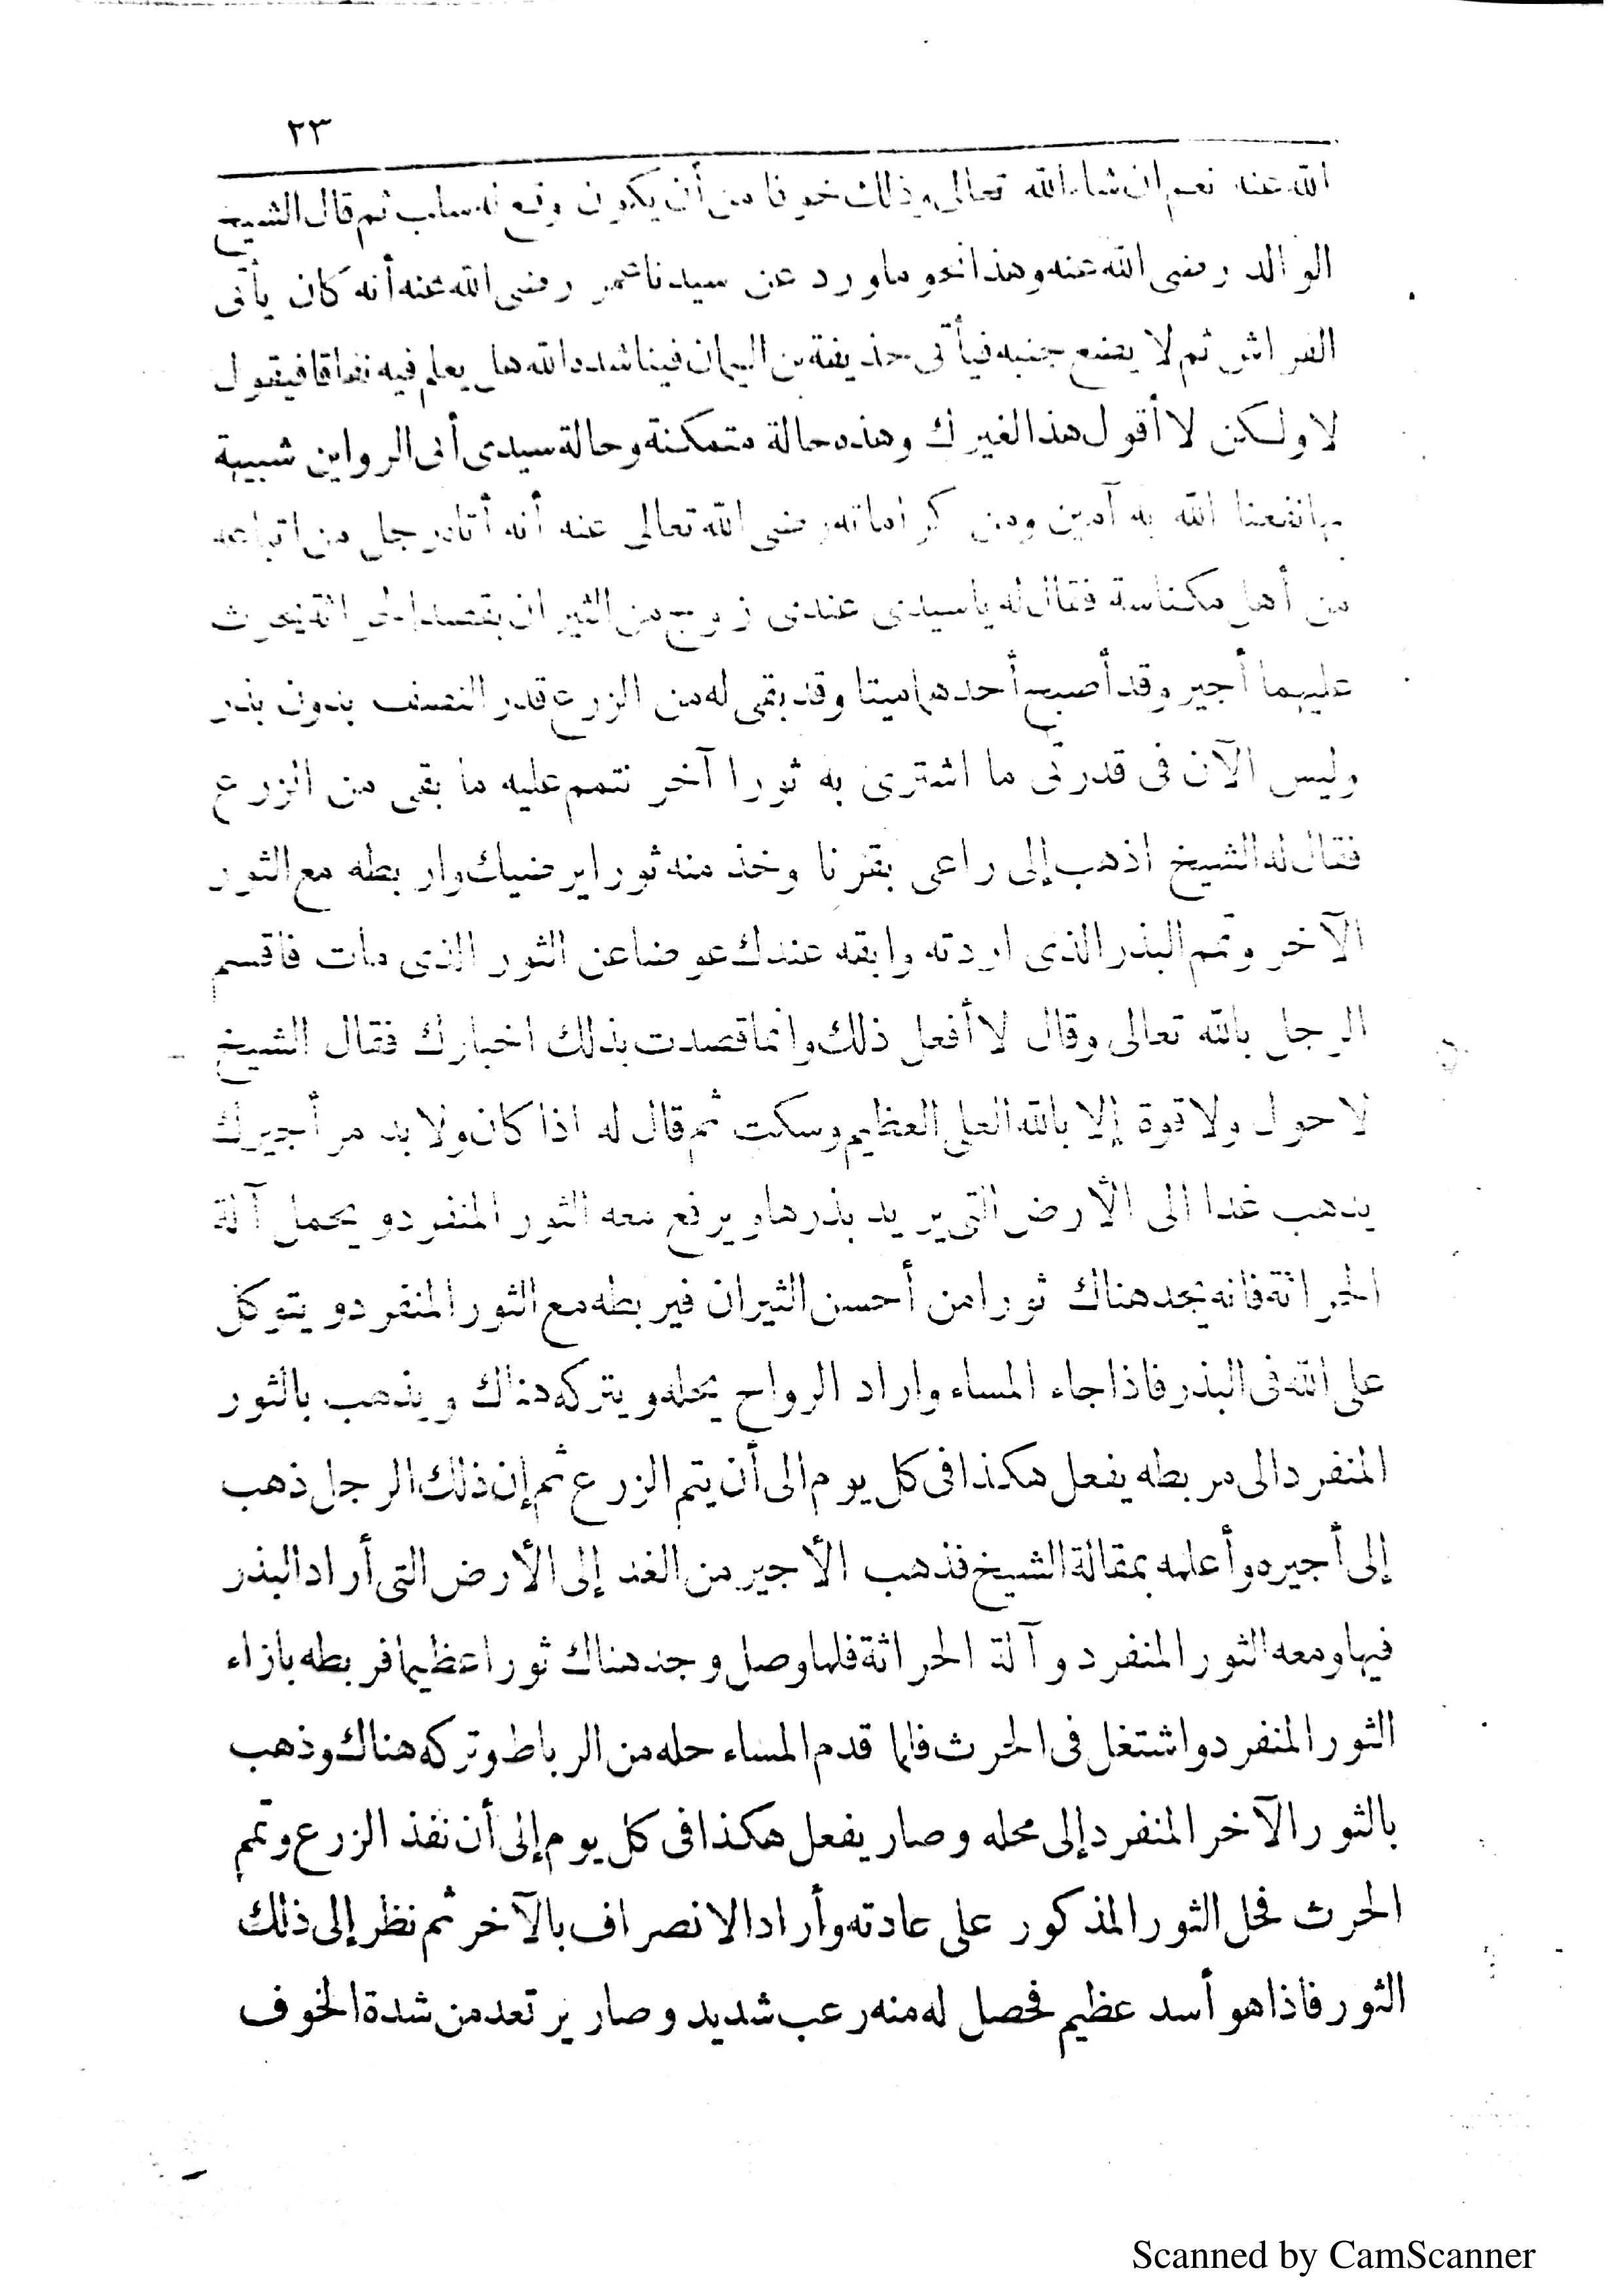 ٢٣
الله عنه نعم ان شاء الله تعالى وذلك خوفا من أن يكون وقع له سلب ثم قال الشيخ
الوالد رضى الله عنه وهذا نحو ماورد عن سيدنا عمر رضى الله عنه أنه كان يأتى
الفراش ثم لا يضع جنبه فيأتى حذيفة بن اليمان فيناشده الله هل يعلم فيه نفاقا فيقول
لا ولكن لا أقول هذا لغيرك وهذه حالة متمكنة وحالة سيدى أبى الرواين شبيهة
بها نفعنا الله به آمين ومن كراماته رضى الله تعالى عنه أنه أتاه رجل من اتباعه
من أهل مكناسة فقال له ياسيدى عندى زوج من الثيران بقصد الحراثة يحرث
عليهما أجير وقد أصبح أحدهما ميتا وقد بقى له من الزرع قدر النصف بدون بذر
وليس الآن فى قدرتى ما اشترى به ثورا آخر نتمم عليه ما بقى من الزرع
فقال له الشيخ اذهب إلى راعى بقرنا وخذ منه ثورا يرضيك واربطه مع الثور
الآخر وتمم البذر الذى اردته وابقه عندك عوضا عن الثور الذى مات فاقسم
الرجل بالله تعالى وقال لا أفعل ذلك وانما قصدت بذلك اخبارك فقال الشيخ
لا حول ولا قوة إلا بالله العلى العظيم وسكت ثم قال له اذا كان ولا بد مر أجيرك
يذهب غدا الى الأرض التى يريد بذرها ويرفع معه الثور المنفرد ويحمل آلة
الحراثة فانه يجد هناك ثورا من أحسن الثيران فيربطه مع الثور المنفرد ويتوكل
على الله فى البذر فاذا جاء المساء واراد الرواح يحله ويتركه هناك ويذهب بالثور
المنفرد الى مربطه يفعل هكذا فى كل يوم الى أن يتم الزرع ثم إن ذلك الرجل ذهب
إلى أجيره وأعلمه بمقالة الشيخ فذهب الأجير من الغد إلى الأرض التى أراد البذر
فيها ومعه الثور المنفرد وآلة الحراثة فلما وصل وجد هناك ثورا عظيما فربطه بازاء
الثور المنفرد واشتغل فى الحرث فلما قدم المساء حله من الرباط وتركه هناك وذهب
بالثور الآخر المنفرد إلى محله وصار يفعل هكذا فى كل يوم إلى أن نفذ الزرع وتمم
الحرث فحل الثور المذكور على عادته وأراد الانصراف بالآخر ثم نظر إلى ذلك
الثور فاذا هو أسد عظيم فحصل له منه رعب شديد وصار يرتعد من شدة الخوف
Scanned by CamScanner